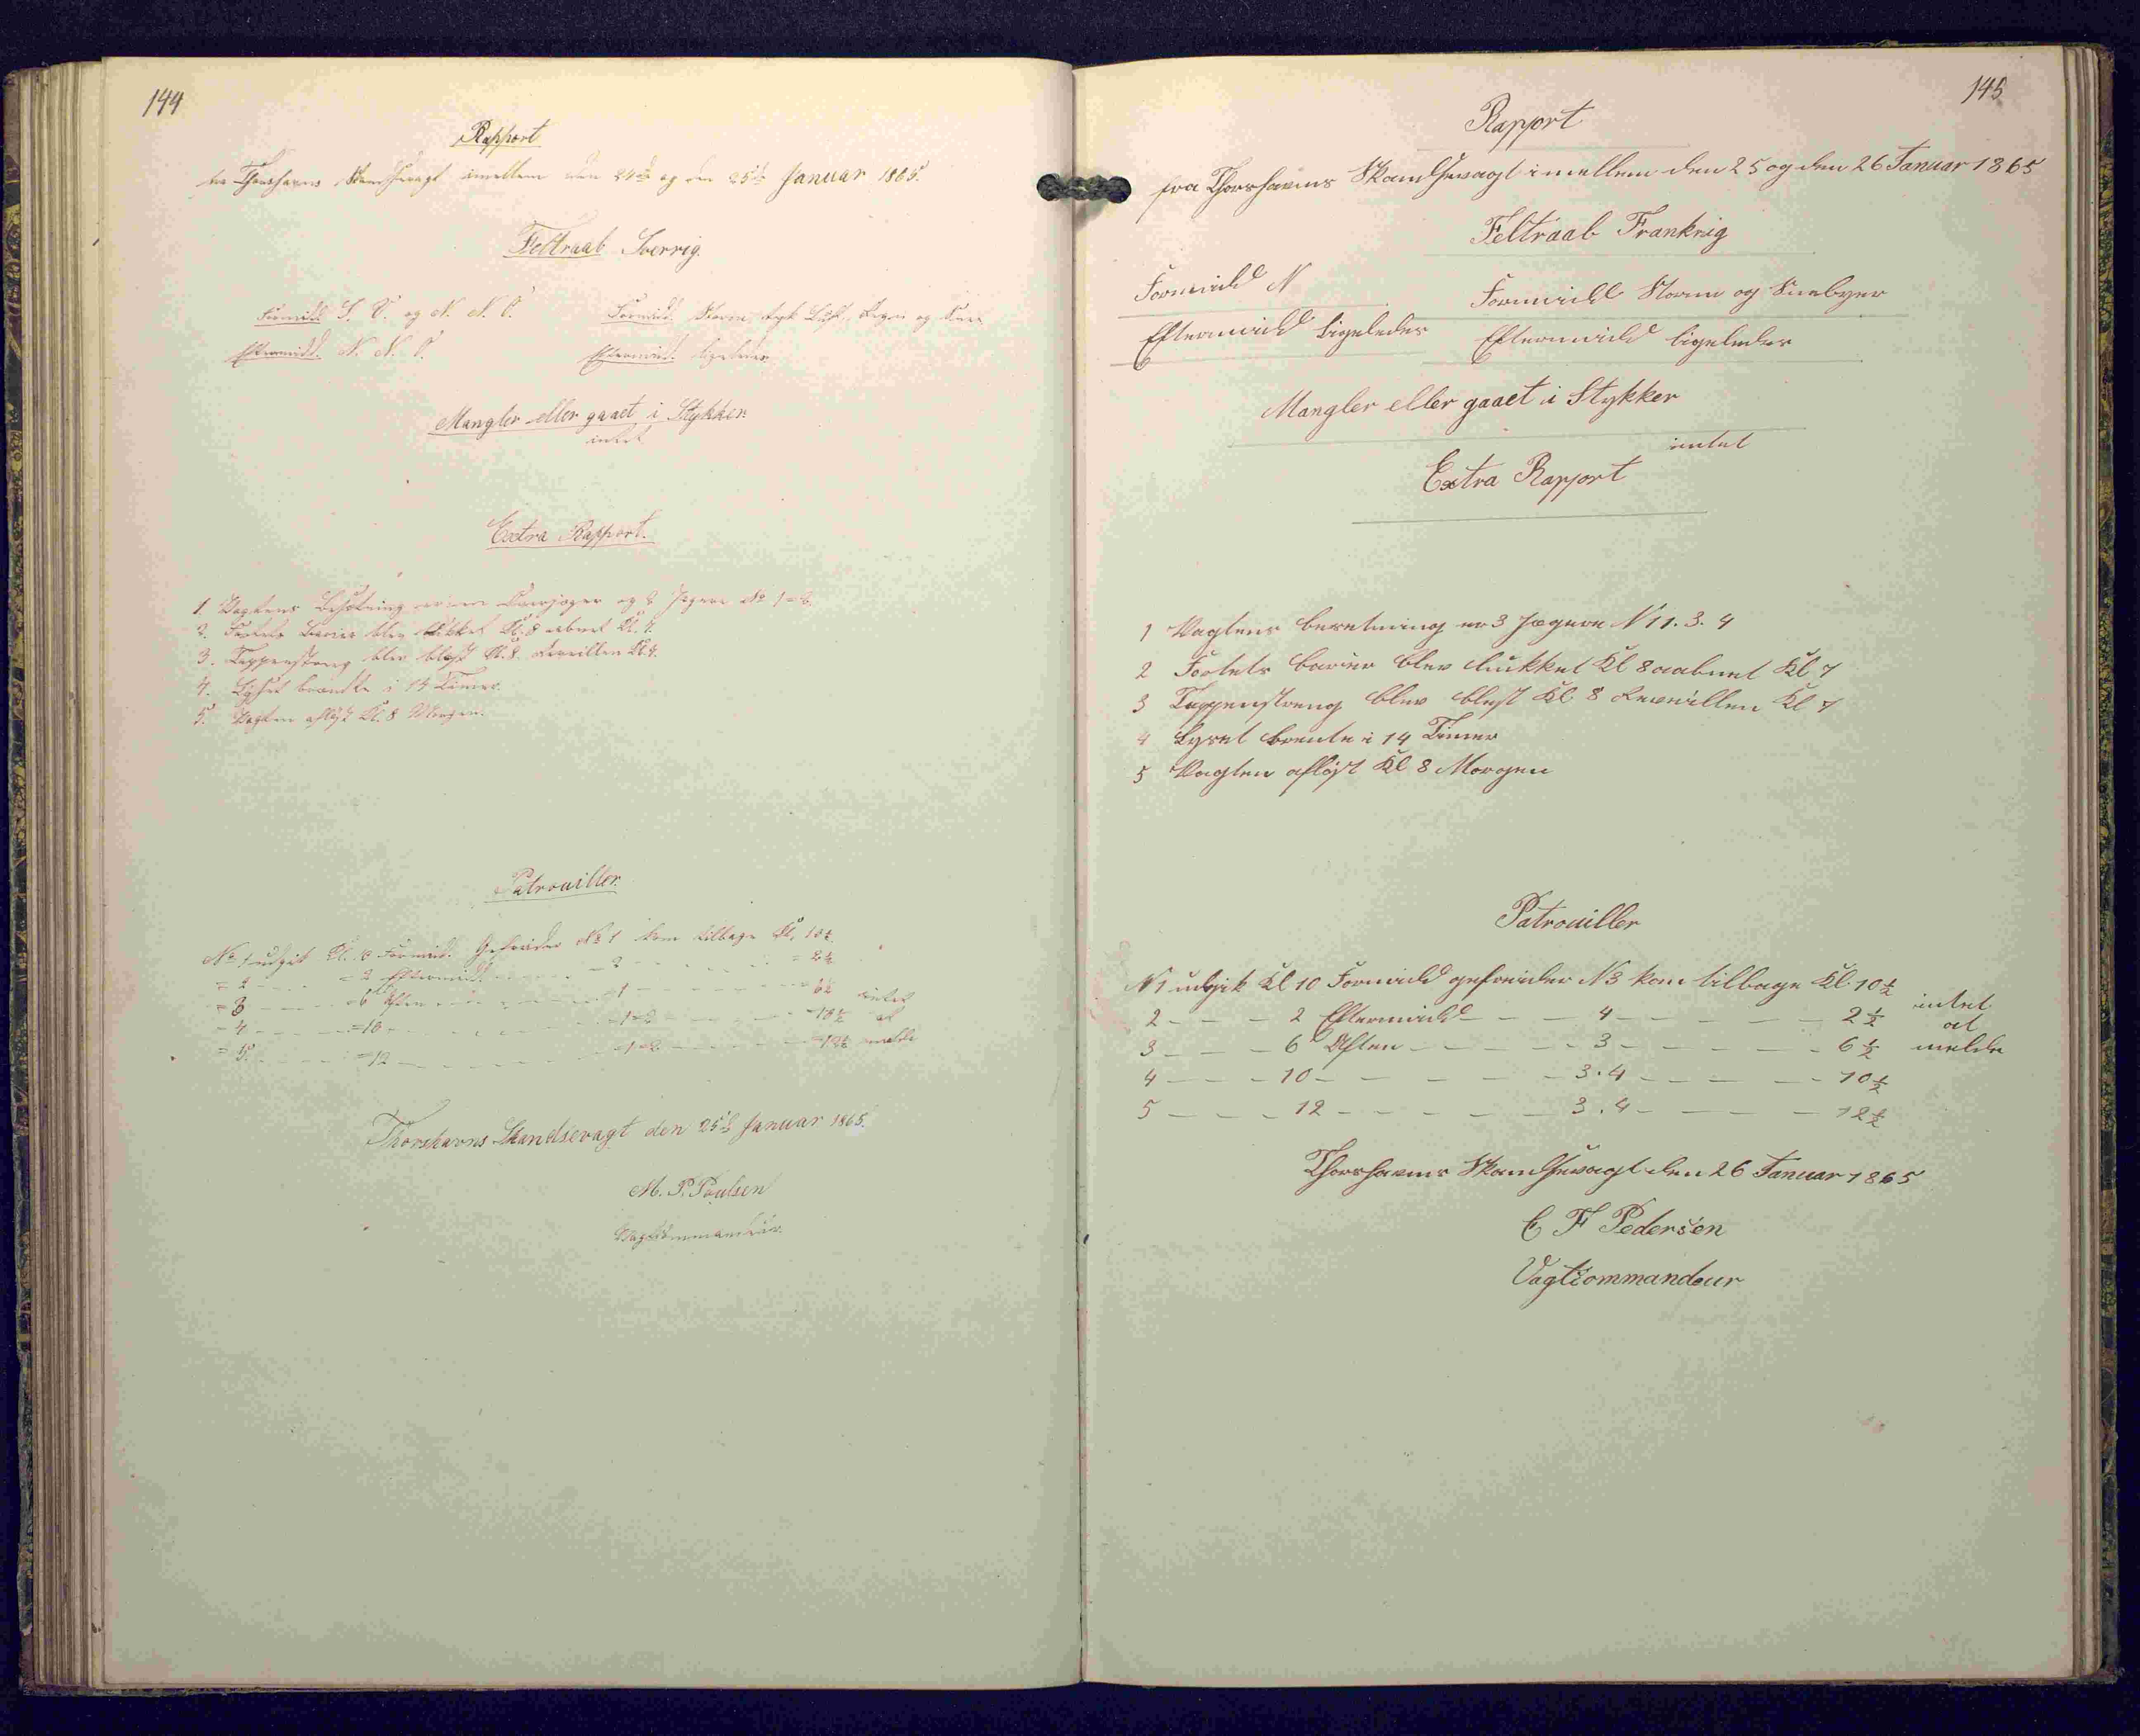 144
Rapport
fra Thorshavns Skandsevagt imellem den 24de og den 25de Januar 1865.
Feltraab Sverrig.
Formidd. S. V. og N. N. O. Formidd. Storm, tyk Luft, Regn og Snee
Eftermidd. N. N. O. Eftermidd. ligeledes
Mangler eller gaaet i Stykker.
intet
Extra Rapport.
1. Vagtens Besætning er en Overjæger og 2 Jægere No 1 = 2.
2. Fortets Barier blev lukket Kl. 8 aabnet Kl. 7.
3. Tappenstreng blev blæst Kl. 8. Reveillen Kl. 7.
4. Lyset brændte i 14 Timer.
5. Vagten afløst Kl. 8 Morgen.
Patrouiller.
No 1 udgik Kl. 10 Formidd. Gefreider No 1 kom tilbage Kl. 10½.
= 2 - - - = 2 Eftermidd. - - - = 2 - - - = 2½
= 3 - - - = 6 Aften - - - = 1 - - - = 6½ intet
= 4 - - - = 10 - - - = 1=2 - - - = 10½ at
= 5. - - - = 12 - - - = 1=2 - - - = 12½ melde
Thorshavns Skandsevagt den 25de Januar 1865.
M. P. Poulsen
Vagtkommandeur.
145
Rapport
fra Thorshavns Skandsevagt imellem den 25 og den 26 Januar 1865
Feltraab Frankrig
Formidd N Formidd Storm og Sneebyer
Eftermidd ligeledes Eftermidd ligeledes
Mangler eller gaaet i Stykker
intet
Extra Rapport
1 Vagtens besetning er 3 Jægere N 1. 3. 4
2 Fortets barier blev lukket Kl 8 aabnet Kl 7
3 Tappenstreng blev blest Kl 8 Reveillen Kl 7
4 Lyset brente i 14 Timer
5 Vagten afløst Kl 8 Morgen
Patrouiller
N 1 udgik Kl 10 Formidd gefreider N 3 kom tilbage Kl 10½
2 - - - 2 Eftermidd - - - 4 - - - 2½ intet
3 - - - 6 Aften - - - 3 - - - 6½ at melde
4 - - - 10 - - - 3. 4 - - - 10½
5 - - - 12 - - - 3. 4 - - - 12½
Thorshavns Skandsevagt den 26 Januar 1865
C F Pedersen
Vagtcommandeur